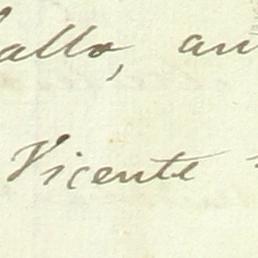 allo, an
Vicente